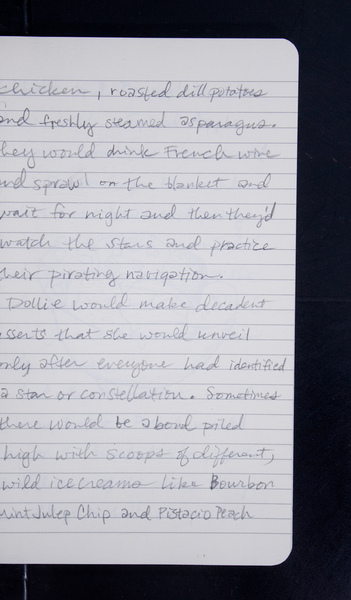 chicken, roasted dill potatoes
and freshly steamed asparagus.
they would drink French wine
and sprawl on the blanket and
wait for night and then they'd
watch the stars and practice
their pirating navigation.
Dollie would make decadent
esserts that she would unveil
only after everyone had identified
a star or constellation. Sometimes
there would be a bowl piled
high with scoops of different,
wild icecreams like Bourbon
Mint Julep Chip and Pistacio Peach